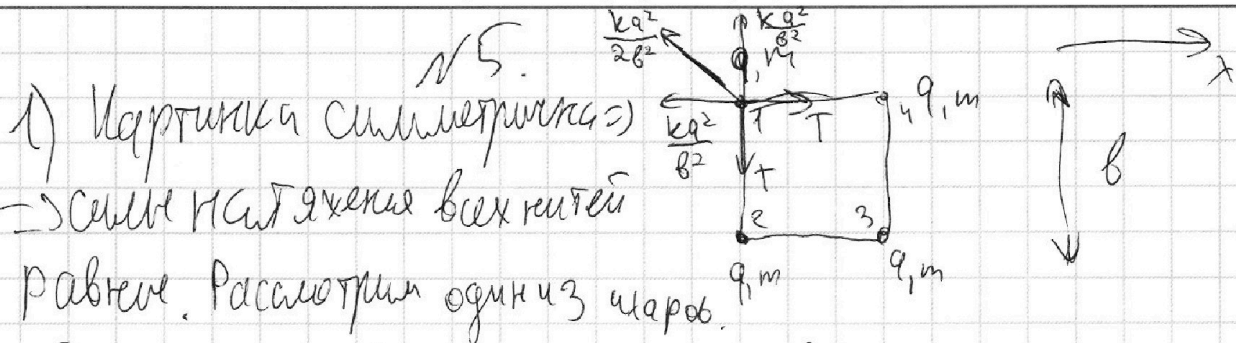 №5.
1) Картинка симметрична =>
=> силы натяжения всех нитей
равны. Рассмотрим один из шаров.
kq²/2b²
kq²/b²
q, m
x
1
T
4 q, m
kq²/b²
T
b
2
3
q, m
q, m